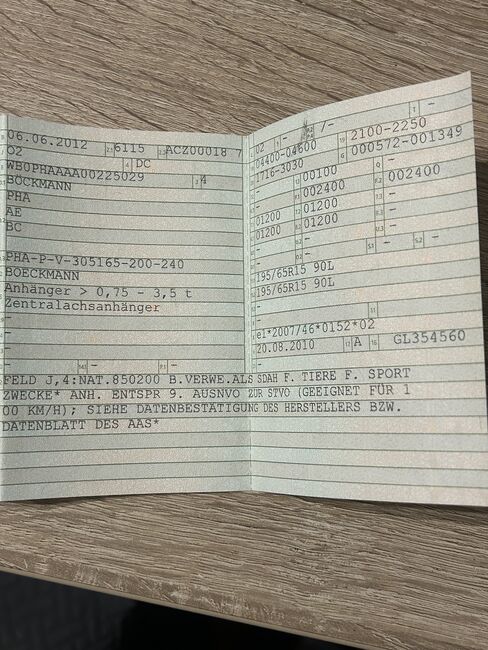 06.06.2012 6115 ACZ00018 7
02 DC
WB0PHAAAA00225029 4
BÖCKMANN
PHA
AE
BC
-
PHA-P-V-305165-200-240
BOECKMANN
Anhänger > 0,75 - 3,5 t
Zentralachsanhänger
-
-
- - -
02 - /- -
04400-04600 2100-2250
1716-3030 000572-001349
- 00100 -
- 002400 002400
01200 01200 -
01200 01200 -
- - -
- - -
195/65R15 90L
195/65R15 90L
-
- -
e1*2007/46*0152*02
20.08.2010 A GL354560
FELD J,4:NAT.850200 B.VERWE.ALS SDAH F. TIERE F. SPORT
ZWECKE* ANH. ENTSPR 9. AUSNVO ZUR STVO (GEEIGNET FÜR 1
00 KM/H); SIEHE DATENBESTÄTIGUNG DES HERSTELLERS BZW.
DATENBLATT DES AAS*